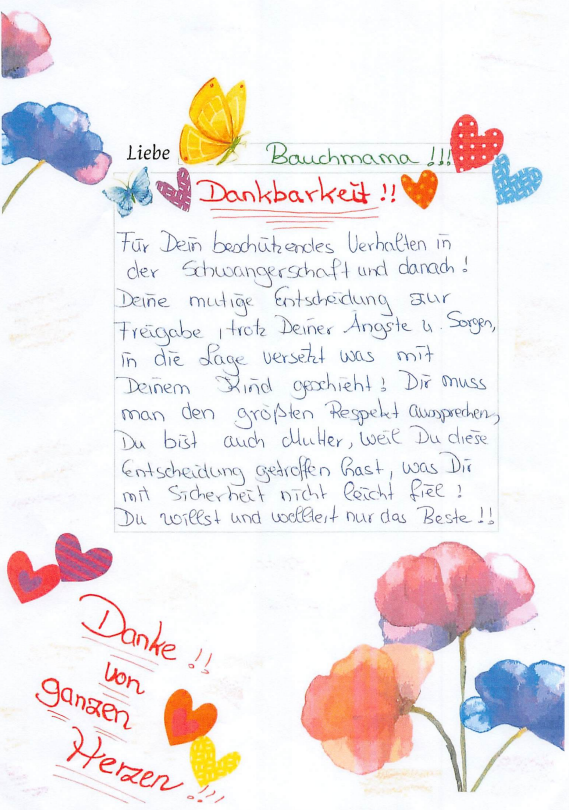 Liebe Bauchmama !!!
Dankbarkeit !!
Für Dein beschützendes Verhalten in
der Schwangerschaft und danach !
Deine mutige Entscheidung zur
Freigabe , trotz Deiner Ängste u. Sorgen,
in die Lage versetzt was mit
Deinem Kind geschieht ! Dir muss
man den größten Respekt aussprechen,
Du bist auch Mutter, weil Du diese
Entscheidung getroffen hast, was Dir
mit Sicherheit nicht leicht fiel !
Du willst und wolltest nur das Beste !!
Danke !!
von
ganzen
Herzen !!!